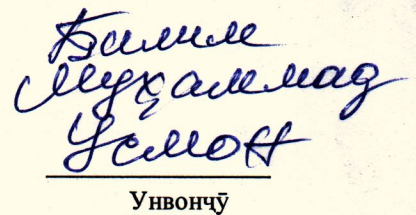 Билим
Муҳаммад
Усмон
Унвонҷӯ